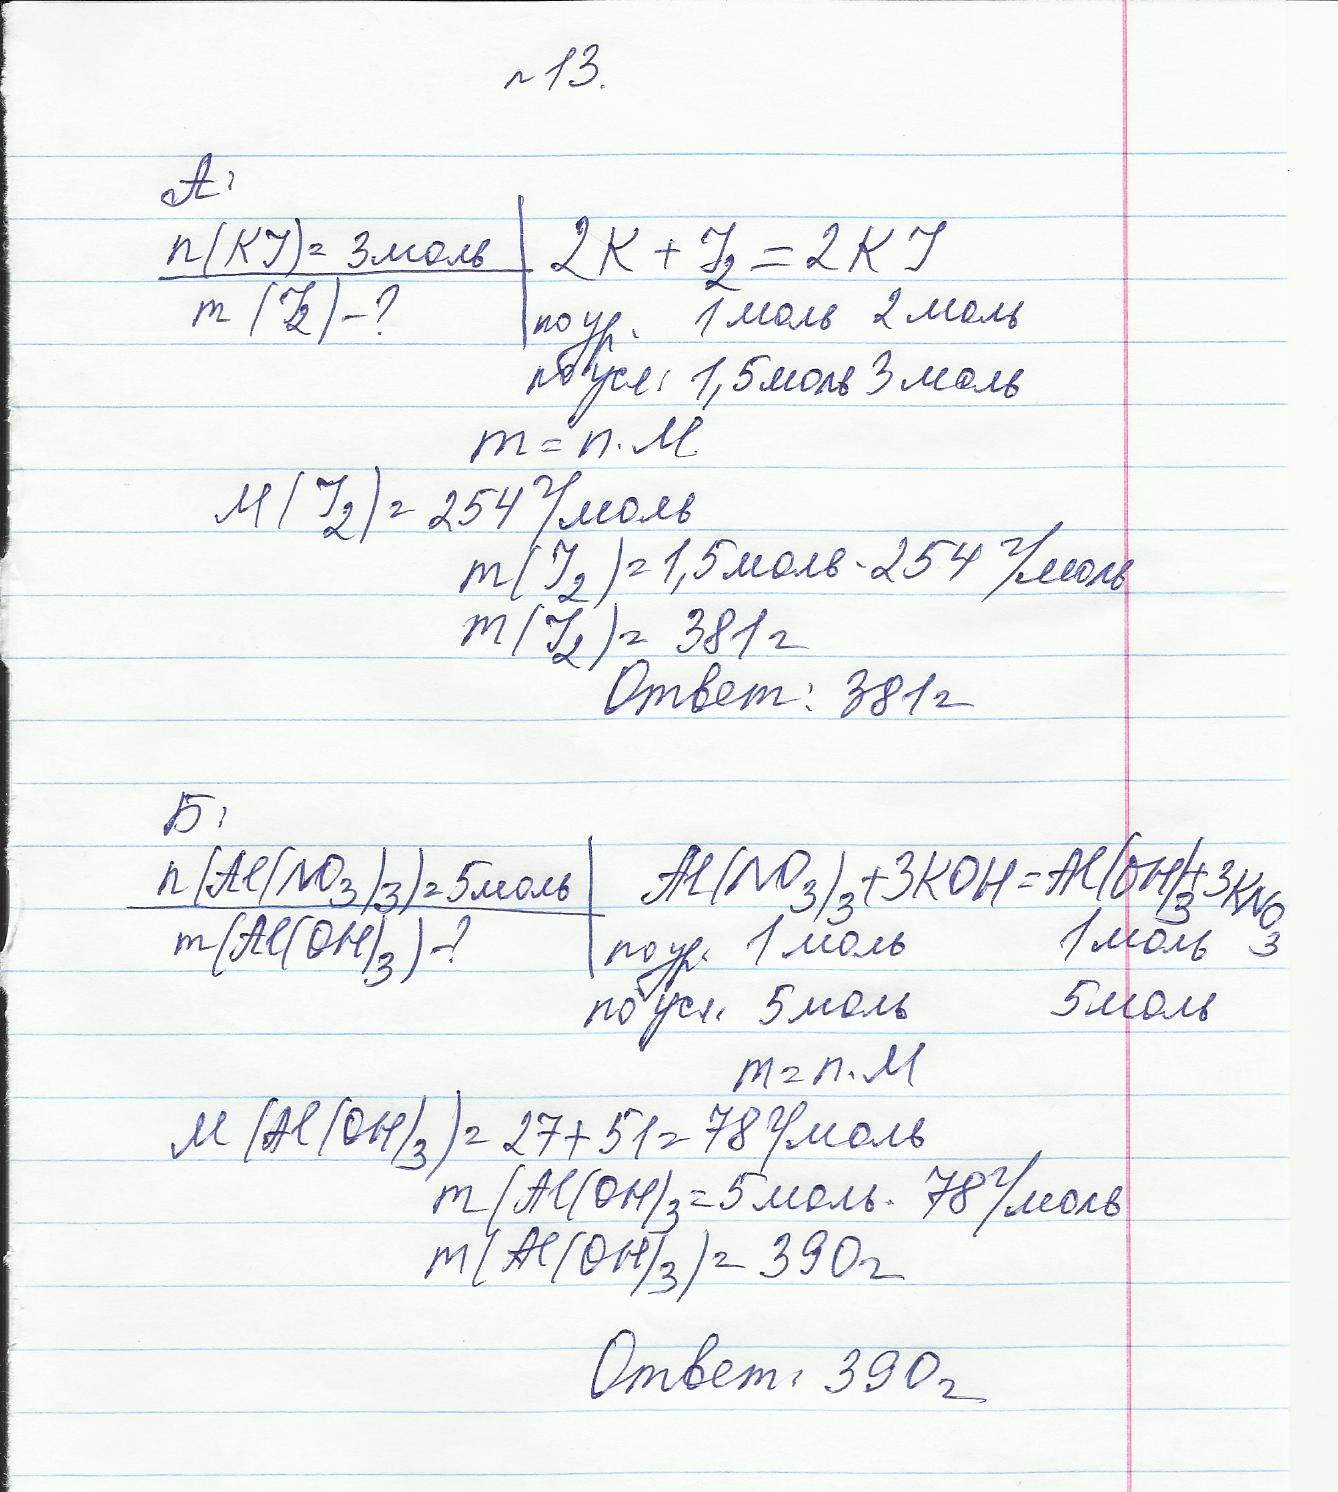 №13.
А:
n(KJ)= 3моль
m(J2)-?
2K + J2 = 2KJ
по ур. 1моль 2моль
по усл: 1,5моль 3моль
m = n·M
M(J2)= 254 г/моль
m(J2)=1,5моль·254 г/моль
m(J2)= 381г
Ответ: 381г
Б:
n(Al(NO3)3)=5моль
m(Al(OH)3)-?
Al(NO3)3+3KOH=Al(OH)3+3KNO3
по ур. 1моль 1моль
по усл. 5моль 5моль
m=n·M
M(Al(OH)3)= 27+51= 78 г/моль
m(Al(OH)3=5моль· 78 г/моль
m(Al(OH)3)= 390г
Ответ: 390г